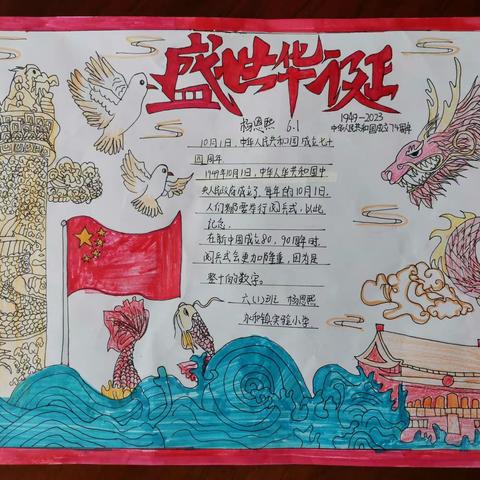 盛世华诞
1949-2023
中华人民共和国成立74周年
杨恩熙 6.1
10月1日,中华人民共和国成立七十
四周年
1949年10月1日,中华人民共和国中
央人民政府成立了,每年的10月1日,
人们都要举行阅兵式,以此
纪念.
在新中国成立80,90周年时
阅兵式会更加隆重,因为是
整十的数字。
六(1)班 杨恩熙
永和镇实验小学